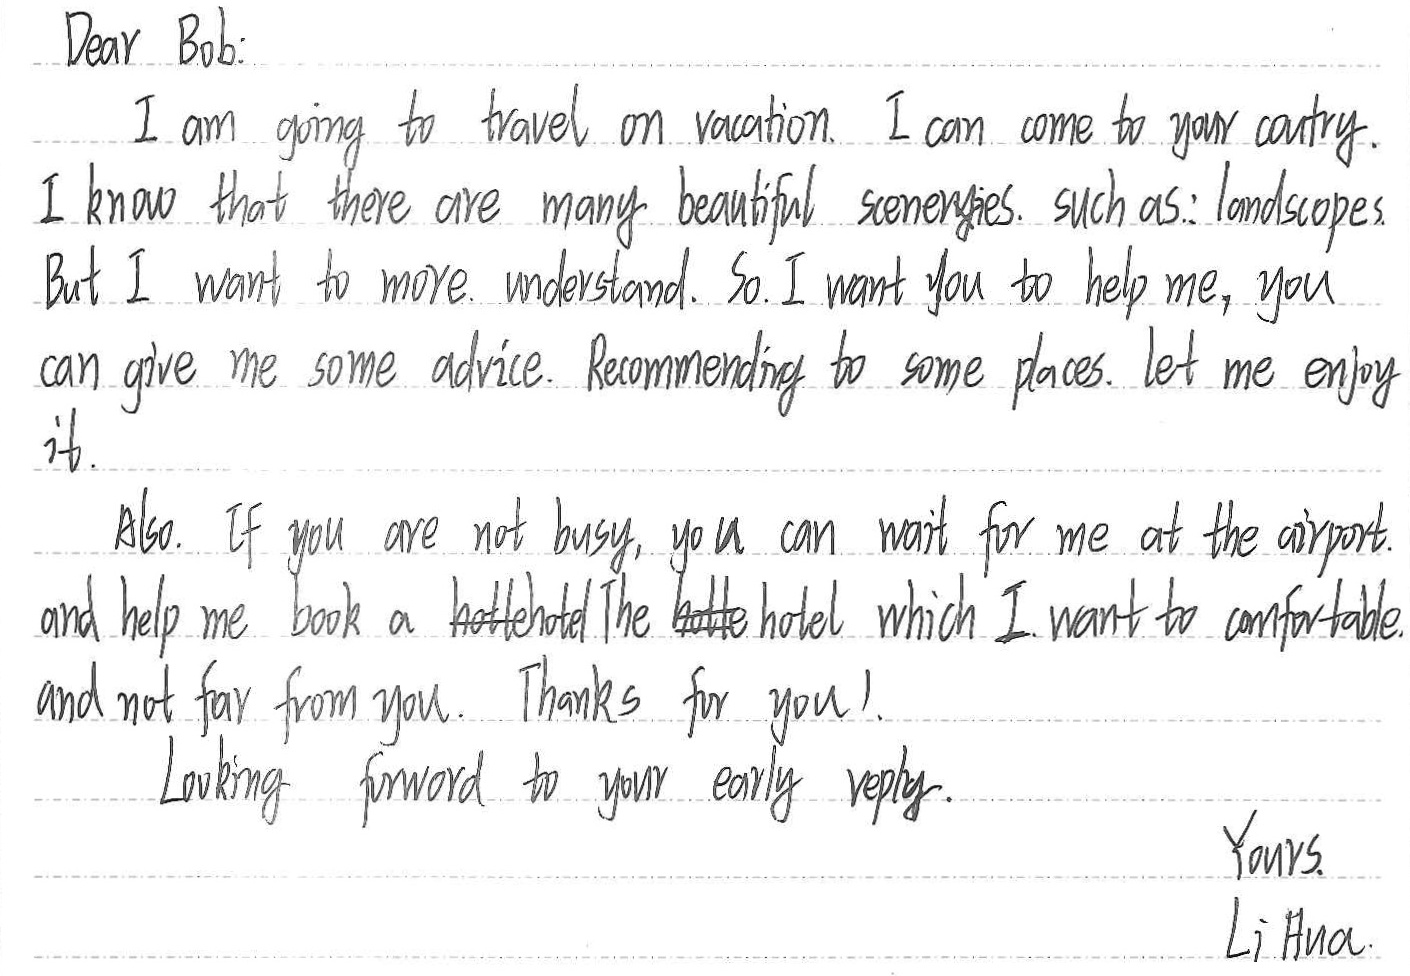 Dear Bob:
I am going to travel on vacation. I can come to your coutry.
I know that there are many beautiful scenergies. such as.: landscopes.
But I want to more. understand. So. I want you to help me, you
can give me some advice. Recommending to some places. let me enjoy
it.
Also. If you are not busy, you can wait for me at the airport.
and help me book a hotel The hotel which I want to comfortable.
and not far from you. Thanks for you!.
Looking forword to your early reply.
Yours.
Li Hua.